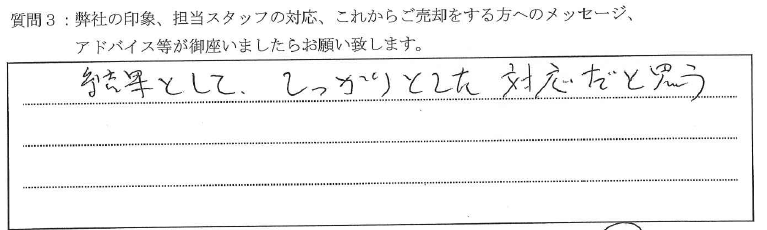 質問３：弊社の印象、担当スタッフの対応、これからご売却をする方へのメッセージ、
アドバイス等が御座いましたらお願い致します。
結果として、しっかりとした対応だと思う